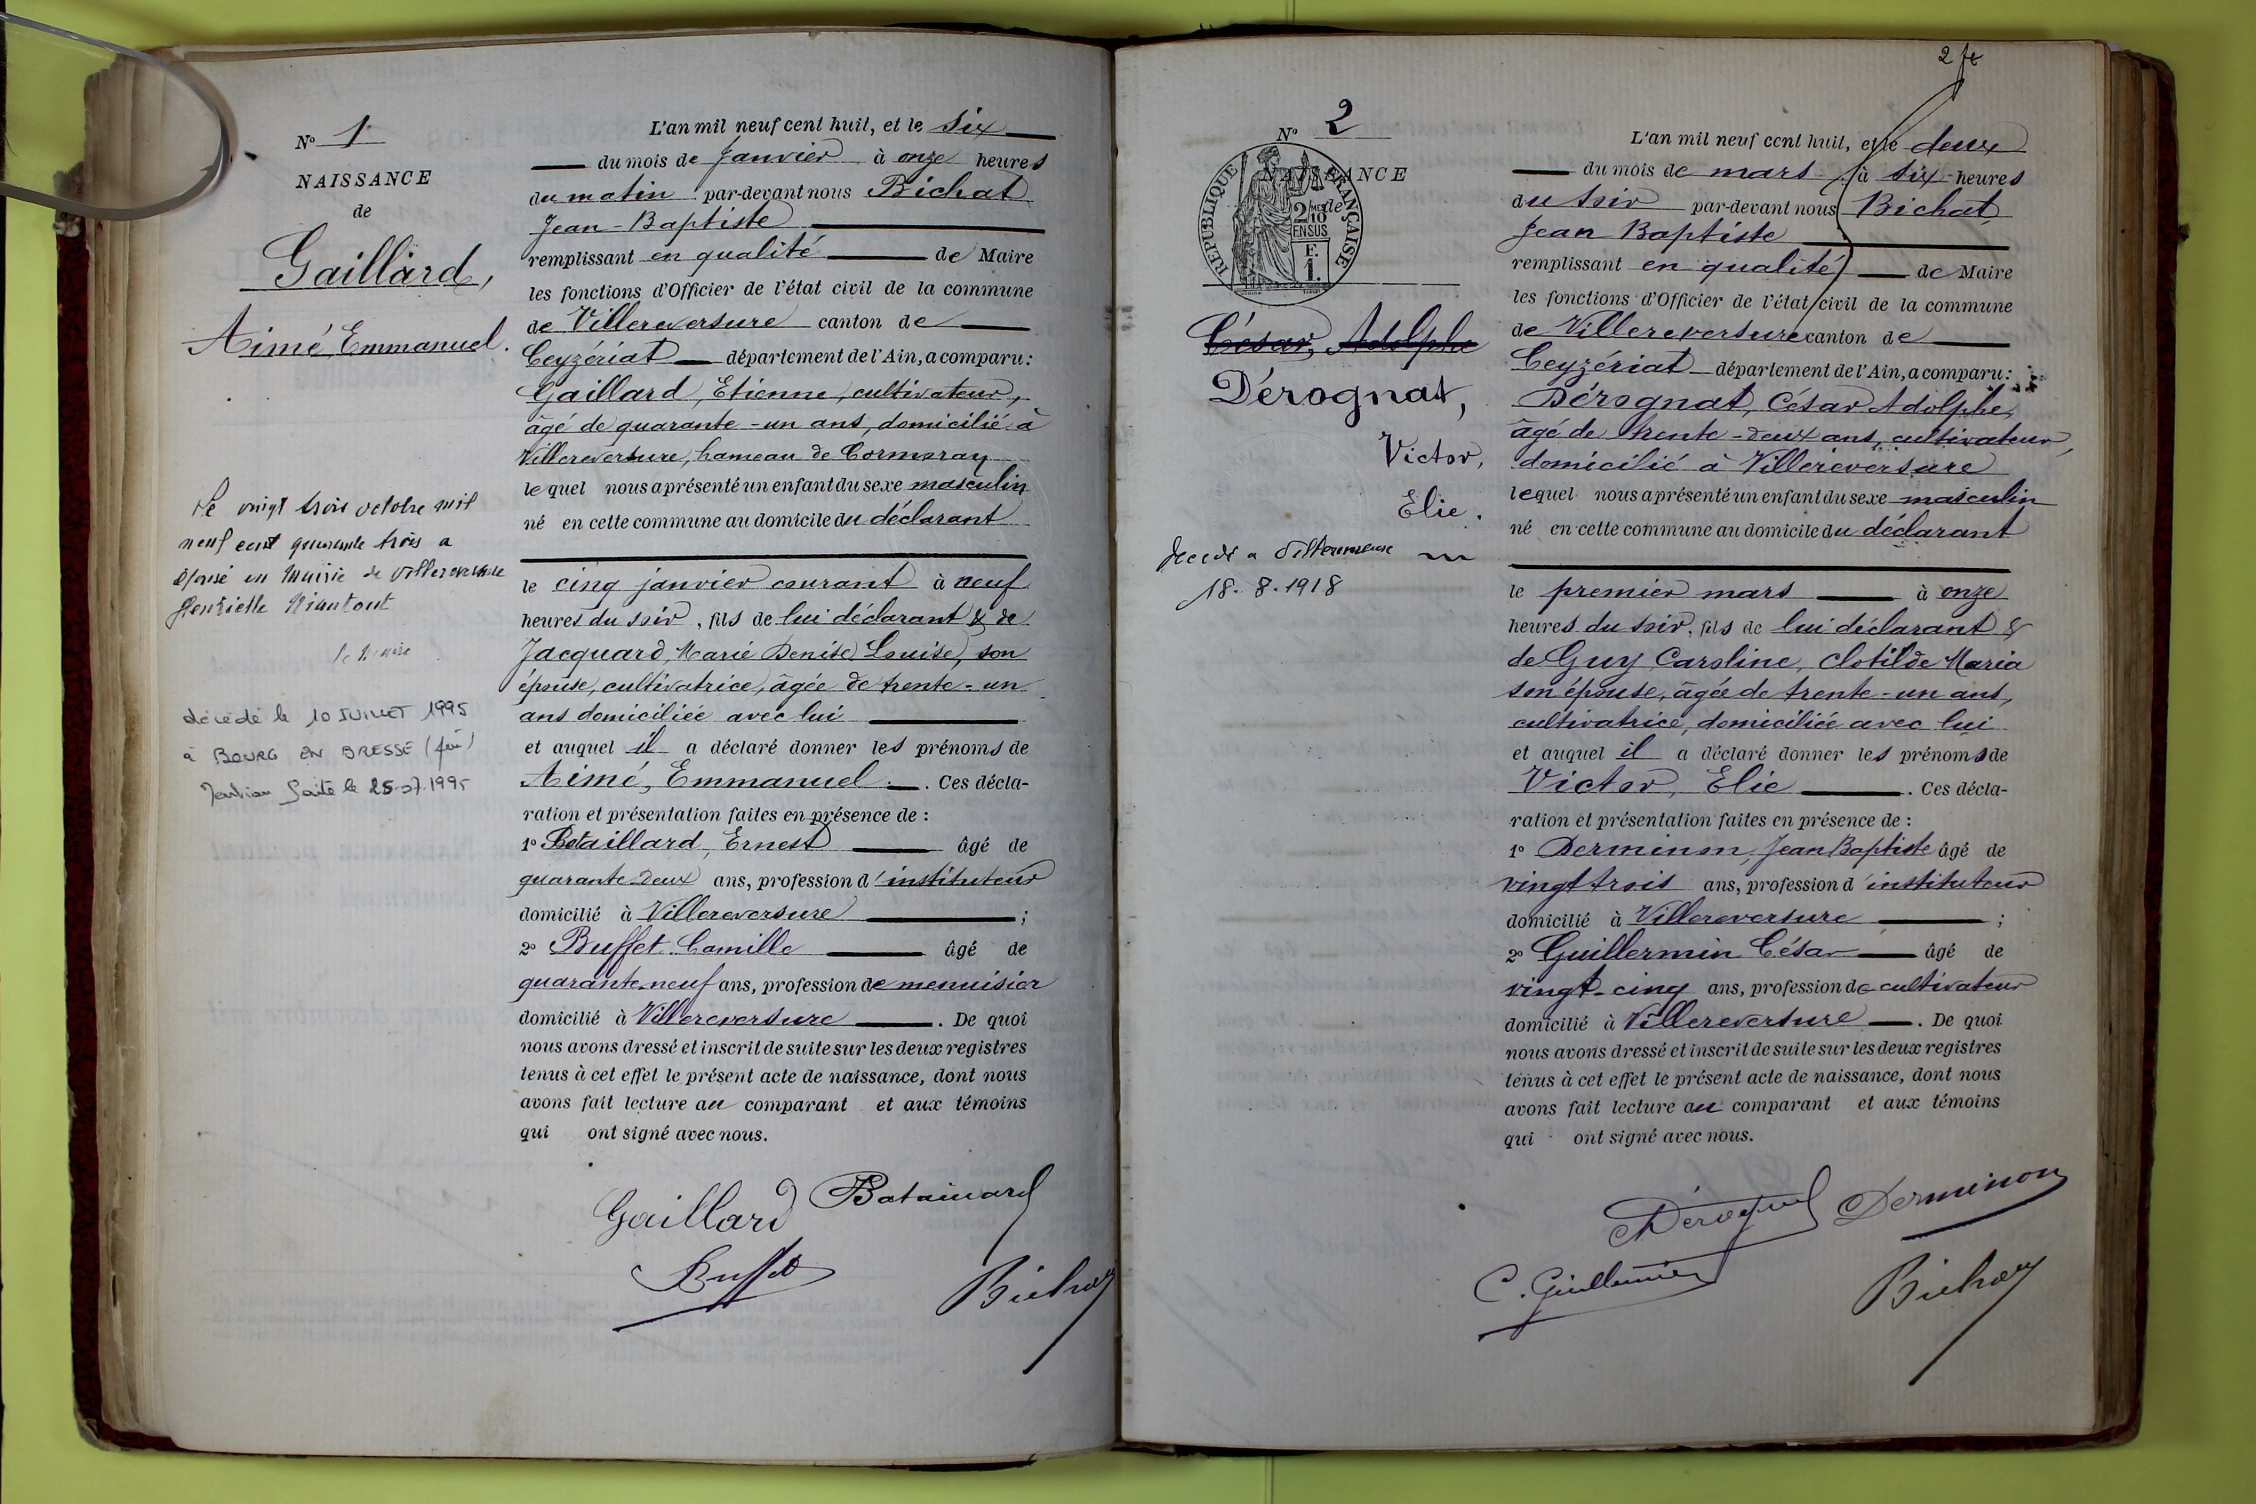 N° 1
NAISSANCE
de
Gaillard,
Aimé Emmanuel.
Le vingt trois octobre mil
neuf cent quarante trois a
épousé en Mairie de Villereversure
Henriette
le Maire
décédé le 10 JUILLET 1995
à BOURG EN BRESSE (Ain)
Mention faite le 25.07.1995
L'an mil neuf cent huit, et le six
du mois de Janvier à onze heures
du matin par-devant nous Bichat
Jean-Baptiste
remplissant en qualité de Maire
les fonctions d'Officier de l'état civil de la commune
de Villereversure canton de
Ceyzériat département de l'Ain, a comparu:
Gaillard, Etienne, cultivateur,
âgé de quarante-un ans, domicilié à
Villereversure, hameau de Cormoray
lequel nous a présenté un enfant du sexe masculin
né en cette commune au domicile du déclarant
le cinq janvier courant à neuf
heures du soir, fils de lui déclarant & de
Jacquard, Marie Denise Louise, son
épouse, cultivatrice, âgée de trente-un
ans domiciliée avec lui
et auquel il a déclaré donner les prénoms de
Aimé, Emmanuel. Ces décla-
ration et présentation faites en présence de :
1° Bataillard, Ernest âgé de
quarante-deux ans, profession d'instituteur
domicilié à Villereversure ;
2° Buffet Camille âgé de
quarante-neuf ans, profession de menuisier
domicilié à Villereversure. De quoi
nous avons dressé et inscrit de suite sur les deux registres
tenus à cet effet le présent acte de naissance, dont nous
avons fait lecture au comparant et aux témoins
qui ont signé avec nous.
Gaillard Bataillard
Buffet
Bichat
2 fe
N° 2
NAISSANCE
de
RÉPUBLIQUE FRANÇAISE
2 MES
10
EN SUS
E.
1.
César, Adolphe
Dérognat,
Victor,
Elie.
Décédé à Villereversure
18.8.1918
L'an mil neuf cent huit, et le deux
du mois de mars à six heures
du soir par-devant nous Bichat
Jean Baptiste
remplissant en qualité de Maire
les fonctions d'Officier de l'état civil de la commune
de Villereversure canton de
Ceyzériat département de l'Ain, a comparu:
Dérognat, César Adolphe,
âgé de trente-deux ans, cultivateur,
domicilié à Villereversure
lequel nous a présenté un enfant du sexe masculin
né en cette commune au domicile du déclarant
le premier mars à onze
heures du soir, fils de lui déclarant &
de Guy Caroline, Clotilde Maria
son épouse, âgée de trente-un ans,
cultivatrice, domiciliée avec lui
et auquel il a déclaré donner les prénoms de
Victor, Elie. Ces décla-
ration et présentation faites en présence de :
1° Derminon, Jean Baptiste âgé de
vingt trois ans, profession d'instituteur
domicilié à Villereversure ;
2° Guillermin César âgé de
vingt-cinq ans, profession de cultivateur
domicilié à Villereversure. De quoi
nous avons dressé et inscrit de suite sur les deux registres
tenus à cet effet le présent acte de naissance, dont nous
avons fait lecture au comparant et aux témoins
qui ont signé avec nous.
Dérognat Derminon
C. Guillermin
Bichat